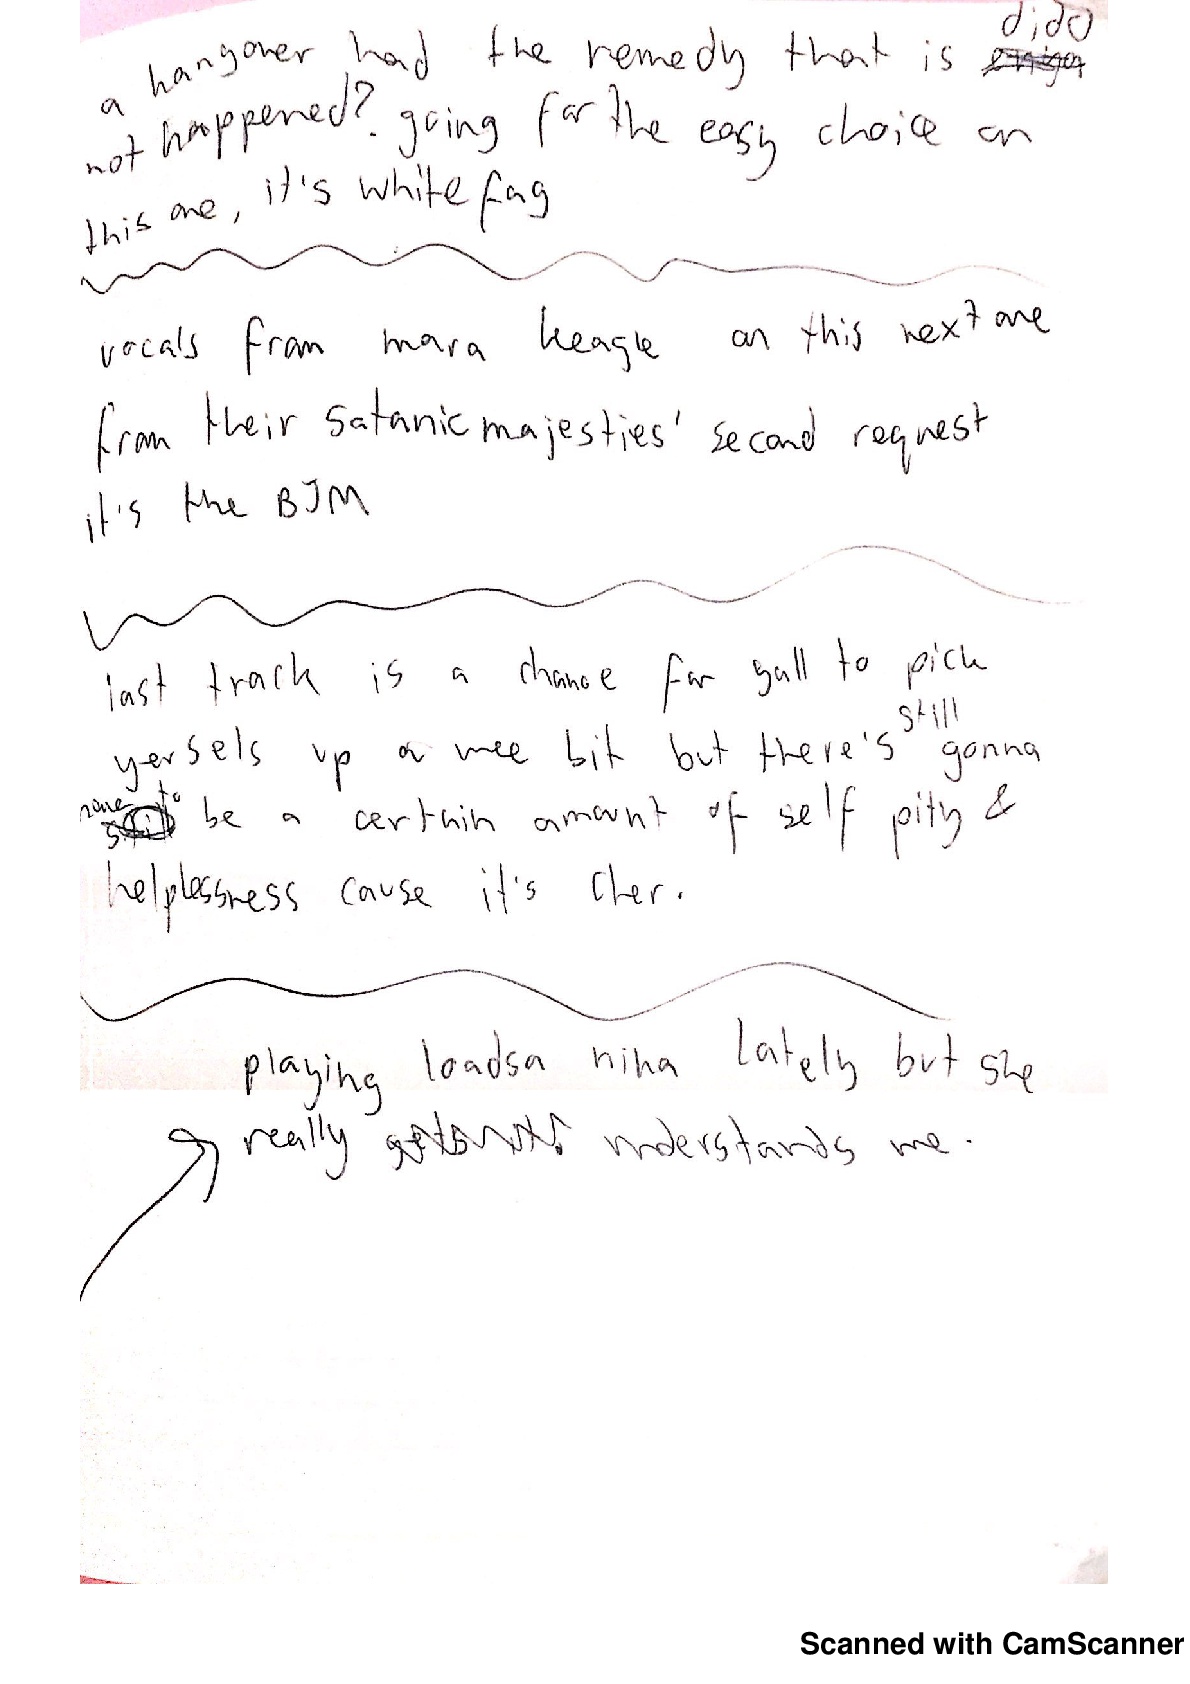 dido
a hangover had the remedy that is
not happened? going for the easy choice on
this one, it's white fag
vocals from mara keagle on this next one
from their satanic majesties' second request
it's the BJM
last track is a chance for yall to pick
yersels up a wee bit but there's still gonna
have to be a certain amount of self pity &
helplessness cause it's Cher.
playing loadsa nina lately but she
really understands me.
Scanned with CamScanner